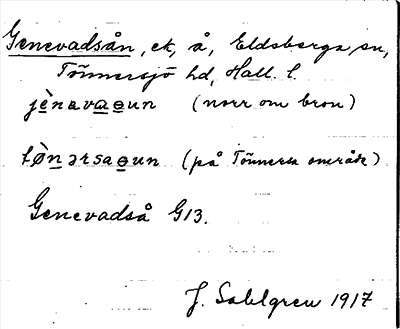 Genevadsån, ek, å, Eldsberga sn,
Tönnersjö hd, Hall. l.
jènavaɵun (norr om bron)
tǿnərsaɵun (på Tönnersa område)
Genevadså G13.
J. Sahlgren 1917